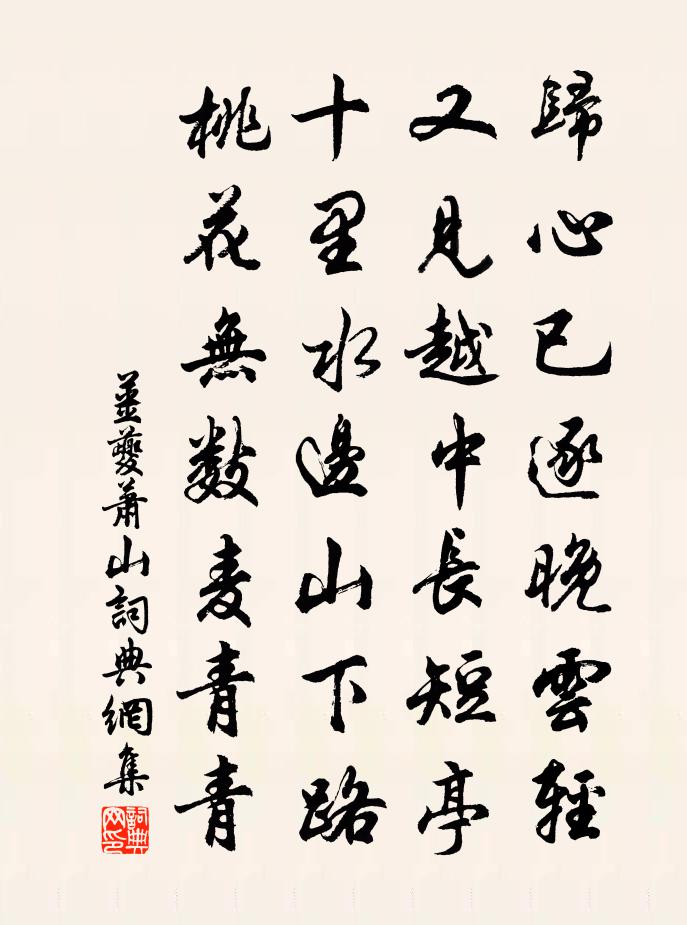 歸心已逐晚雲輕
又見越中長短亭
十里水邊山下路
桃花無數麦青青
姜夔蕭山詞典網集
詞典网印